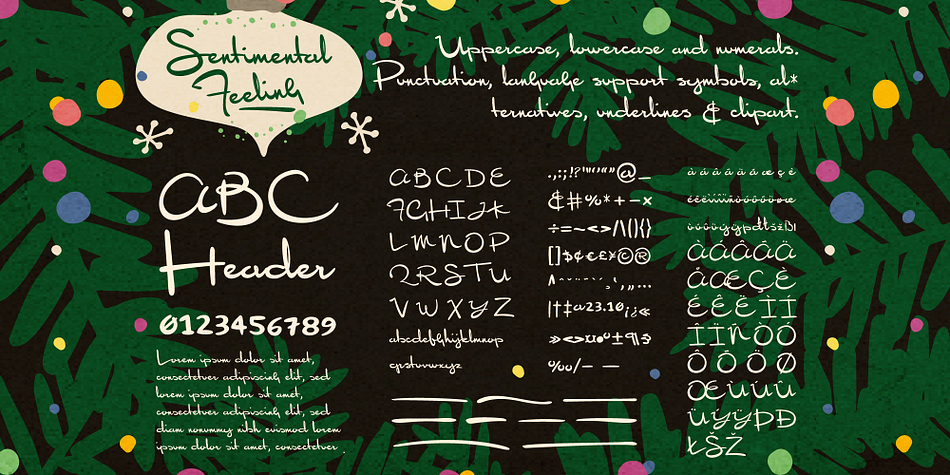 Sentimental
Feeling
Uppercase, lowercase and numerals.
Punctuation, language support symbols, al*
ternatives, underlines & clipart.
ABC
Header
0123456789
Lorem ipsum dolor sit amet,
consectetuer adipiscing elit, sed
lorem ipsum dolor sit amet,
consectetuer adipiscing elit, sed
diam nonummy nibh euismod lorem
ipsum dolor sit amet, consectetuer.
ABCDE
FGHIJK
LMNOP
QRSTU
VWXYZ
abcdefghijklmnop
qrstuvwxyz
.,:;!?'"@_
&#%*+−×
÷=~-<>/\|(){}
[]$¢€£¥©®
|†‡23.10¡¿«
»<>¤•ºª±¶
‰/– —
àáâãäåæçè
ÒÁÂÃÄ
ÅÆÇÈ
ÉÊËÌÍ
ÎÏÑÒÓ
ÔÕÖØ
ŒÙÚÛ
ÜÝŸÞÐ
ŁŠŽ